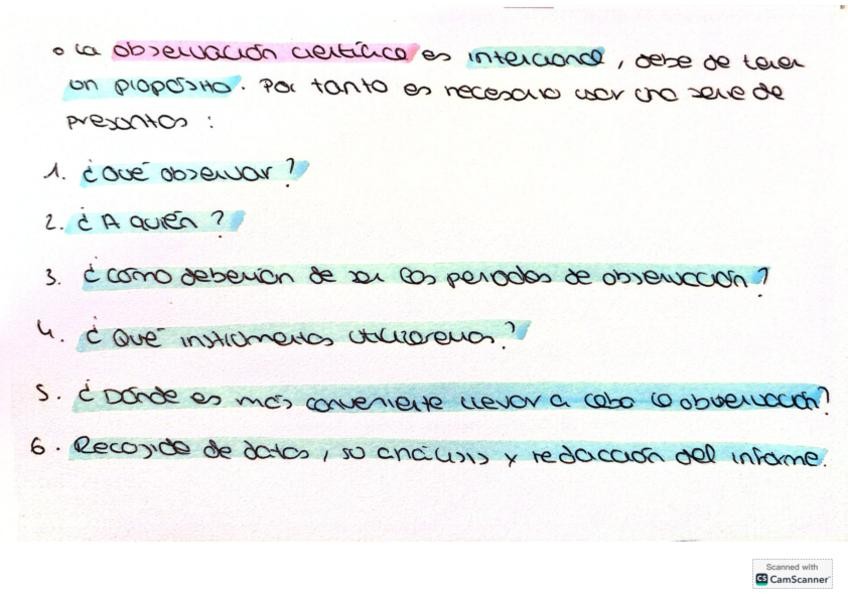 o La observación científica es intencional, debe de tener
un propósito. Por tanto es necesario usar una serie de
preguntas :
1. ¿Qué observar?
2. ¿A quién?
3. ¿Cómo deberían de ser los periodos de observación?
4. ¿Qué instrumentos utilizaremos?
5. ¿Dónde es más conveniente llevar a cabo la observación?
6. Recogida de datos, su análisis y redacción del informe.
Scanned with
CS CamScanner